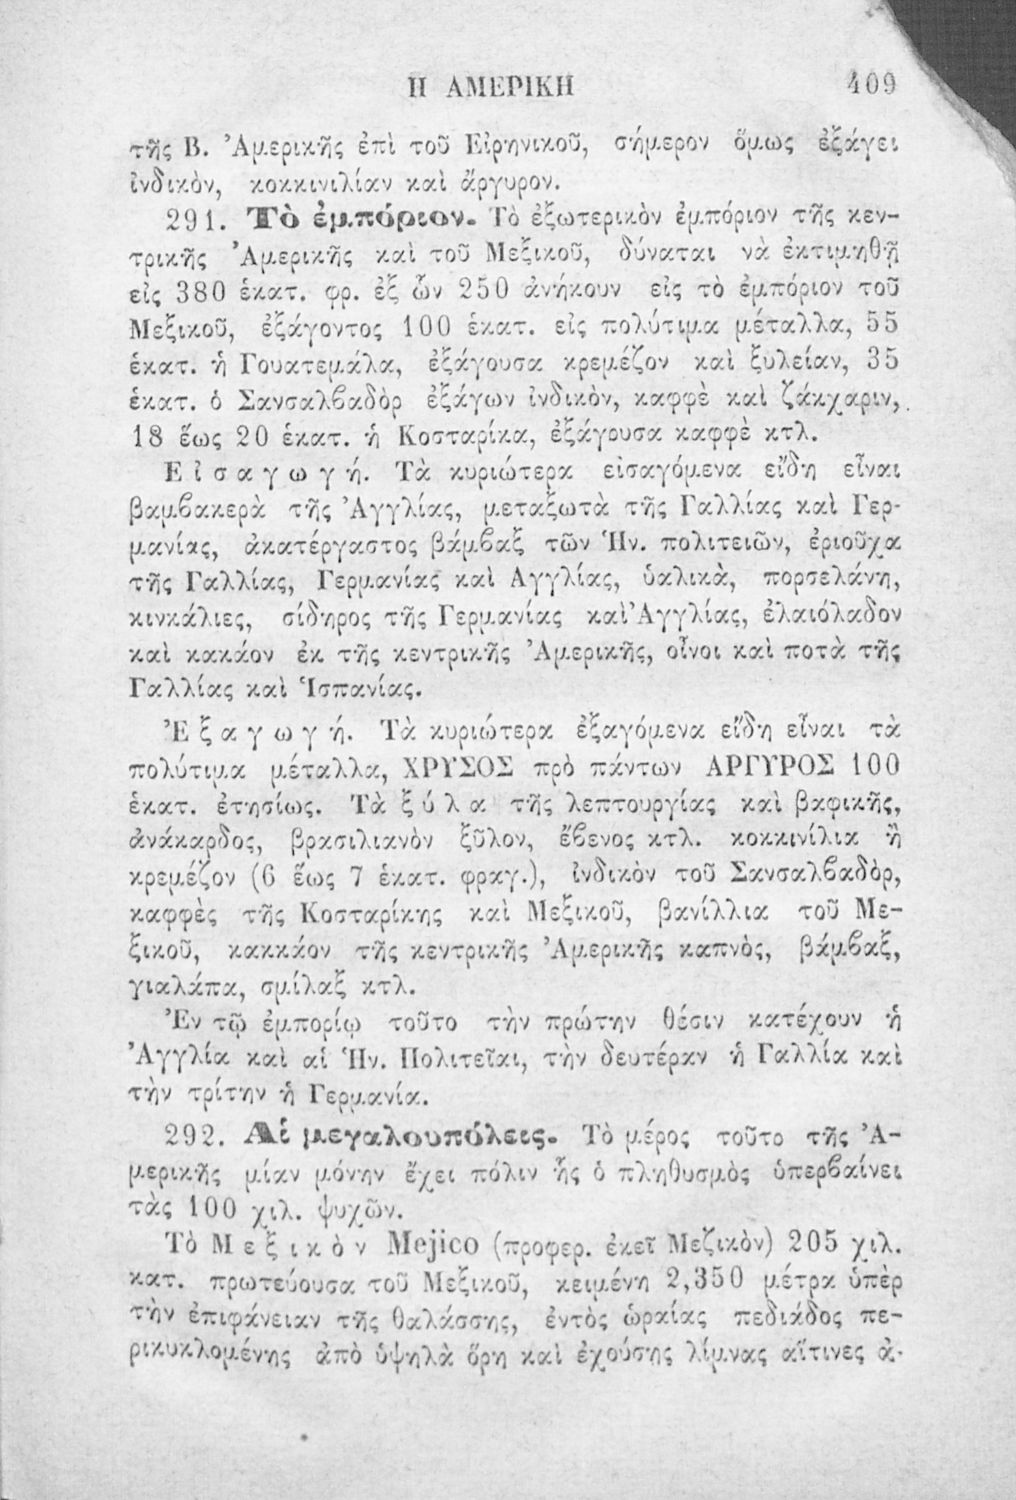 Η ΑΜΕΡΙΚΗ 409
τῆς Β. Ἀμερικῆς ἐπὶ τοῦ Εἰρηνικοῦ, σήμερον ὅμως ἐξάγει
ἰνδικὸν, κοκκινιλίαν καὶ ἄργυρον.
291. Τὸ ἐμπόριον. Τὸ ἐξωτερικὸν ἐμπόριον τῆς κεν-
τρικῆς Ἀμερικῆς καὶ τοῦ Μεξικοῦ, δύναται νὰ ἐκτιμηθῇ
εἰς 380 ἑκατ. φρ. ἐξ ὧν 250 ἀνήκουν εἰς τὸ ἐμπόριον τοῦ
Μεξικοῦ, ἐξάγοντος 100 ἑκατ. εἰς πολύτιμα μέταλλα, 55
ἑκατ. ἡ Γουατεμάλα, ἐξάγουσα κρεμέζον καὶ ξυλείαν, 35
ἑκατ. ὁ Σανσαλβαδὸρ ἐξάγων ἰνδικὸν, καφφὲ καὶ ζάκχαριν,
18 ἕως 20 ἑκατ. ἡ Κοσταρίκα, ἐξάγουσα καφφὲ κτλ.
Εἰσαγωγή. Τὰ κυριώτερα εἰσαγόμενα εἴδη εἶναι
βαμβακερὰ τῆς Ἀγγλίας, μεταξωτὰ τῆς Γαλλίας καὶ Γερ-
μανίας, ἀκατέργαστος βάμβαξ τῶν Ἡν. πολιτειῶν, ἐριοῦχα
τῆς Γαλλίας, Γερμανίας καὶ Ἀγγλίας, ὑαλικὰ, πορσελάνη,
κινκάλιες, σίδηρος τῆς Γερμανίας καὶ Ἀγγλίας, ἐλαιόλαδον
καὶ κακάον ἐκ τῆς κεντρικῆς Ἀμερικῆς, οἶνοι καὶ ποτὰ τῆς
Γαλλίας καὶ Ἱσπανίας.
Ἐξαγωγή. Τὰ κυριώτερα ἐξαγόμενα εἴδη εἶναι τὰ
πολύτιμα μέταλλα, ΧΡΥΣΟΣ πρὸ πάντων ΑΡΓΥΡΟΣ 100
ἑκατ. ἐτησίως. Τὰ ξύλα τῆς λεπτουργίας καὶ βαφικῆς,
ἀνάκαρδος, βρασιλιανὸν ξῦλον, ἔβενος κτλ. κοκκινίλια ἢ
κρεμέζον (6 ἕως 7 ἑκατ. φραγ.), ἰνδικὸν τοῦ Σανσαλβαδὸρ,
καφφὲς τῆς Κοσταρίκης καὶ Μεξικοῦ, βανίλλια τοῦ Με-
ξικοῦ, κακκάον τῆς κεντρικῆς Ἀμερικῆς καπνὸς, βάμβαξ,
γιαλάπα, σμίλαξ κτλ.
Ἐν τῷ ἐμπορίῳ τοῦτο τὴν πρώτην θέσιν κατέχουν ἡ
Ἀγγλία καὶ αἱ Ἡν. Πολιτεῖαι, τὴν δευτέραν ἡ Γαλλία καὶ
τὴν τρίτην ἡ Γερμανία.
292. Αἱ μεγαλουπόλεις. Τὸ μέρος τοῦτο τῆς Ἀ-
μερικῆς μίαν μόνην ἔχει πόλιν ἧς ὁ πληθυσμὸς ὑπερβαίνει
τὰς 100 χιλ. ψυχῶν.
Τὸ Μεξικὸν Mejico (προφερ. ἐκεῖ Μεζικὸν) 205 χιλ.
κατ. πρωτεύουσα τοῦ Μεξικοῦ, κειμένη 2,350 μέτρα ὑπὲρ
τὴν ἐπιφάνειαν τῆς θαλάσσης, ἐντὸς ὡραίας πεδιάδος πε-
ρικυκλομένης ἀπὸ ὑψηλὰ ὄρη καὶ ἐχούσης λίμνας αἵτινες ἀ-